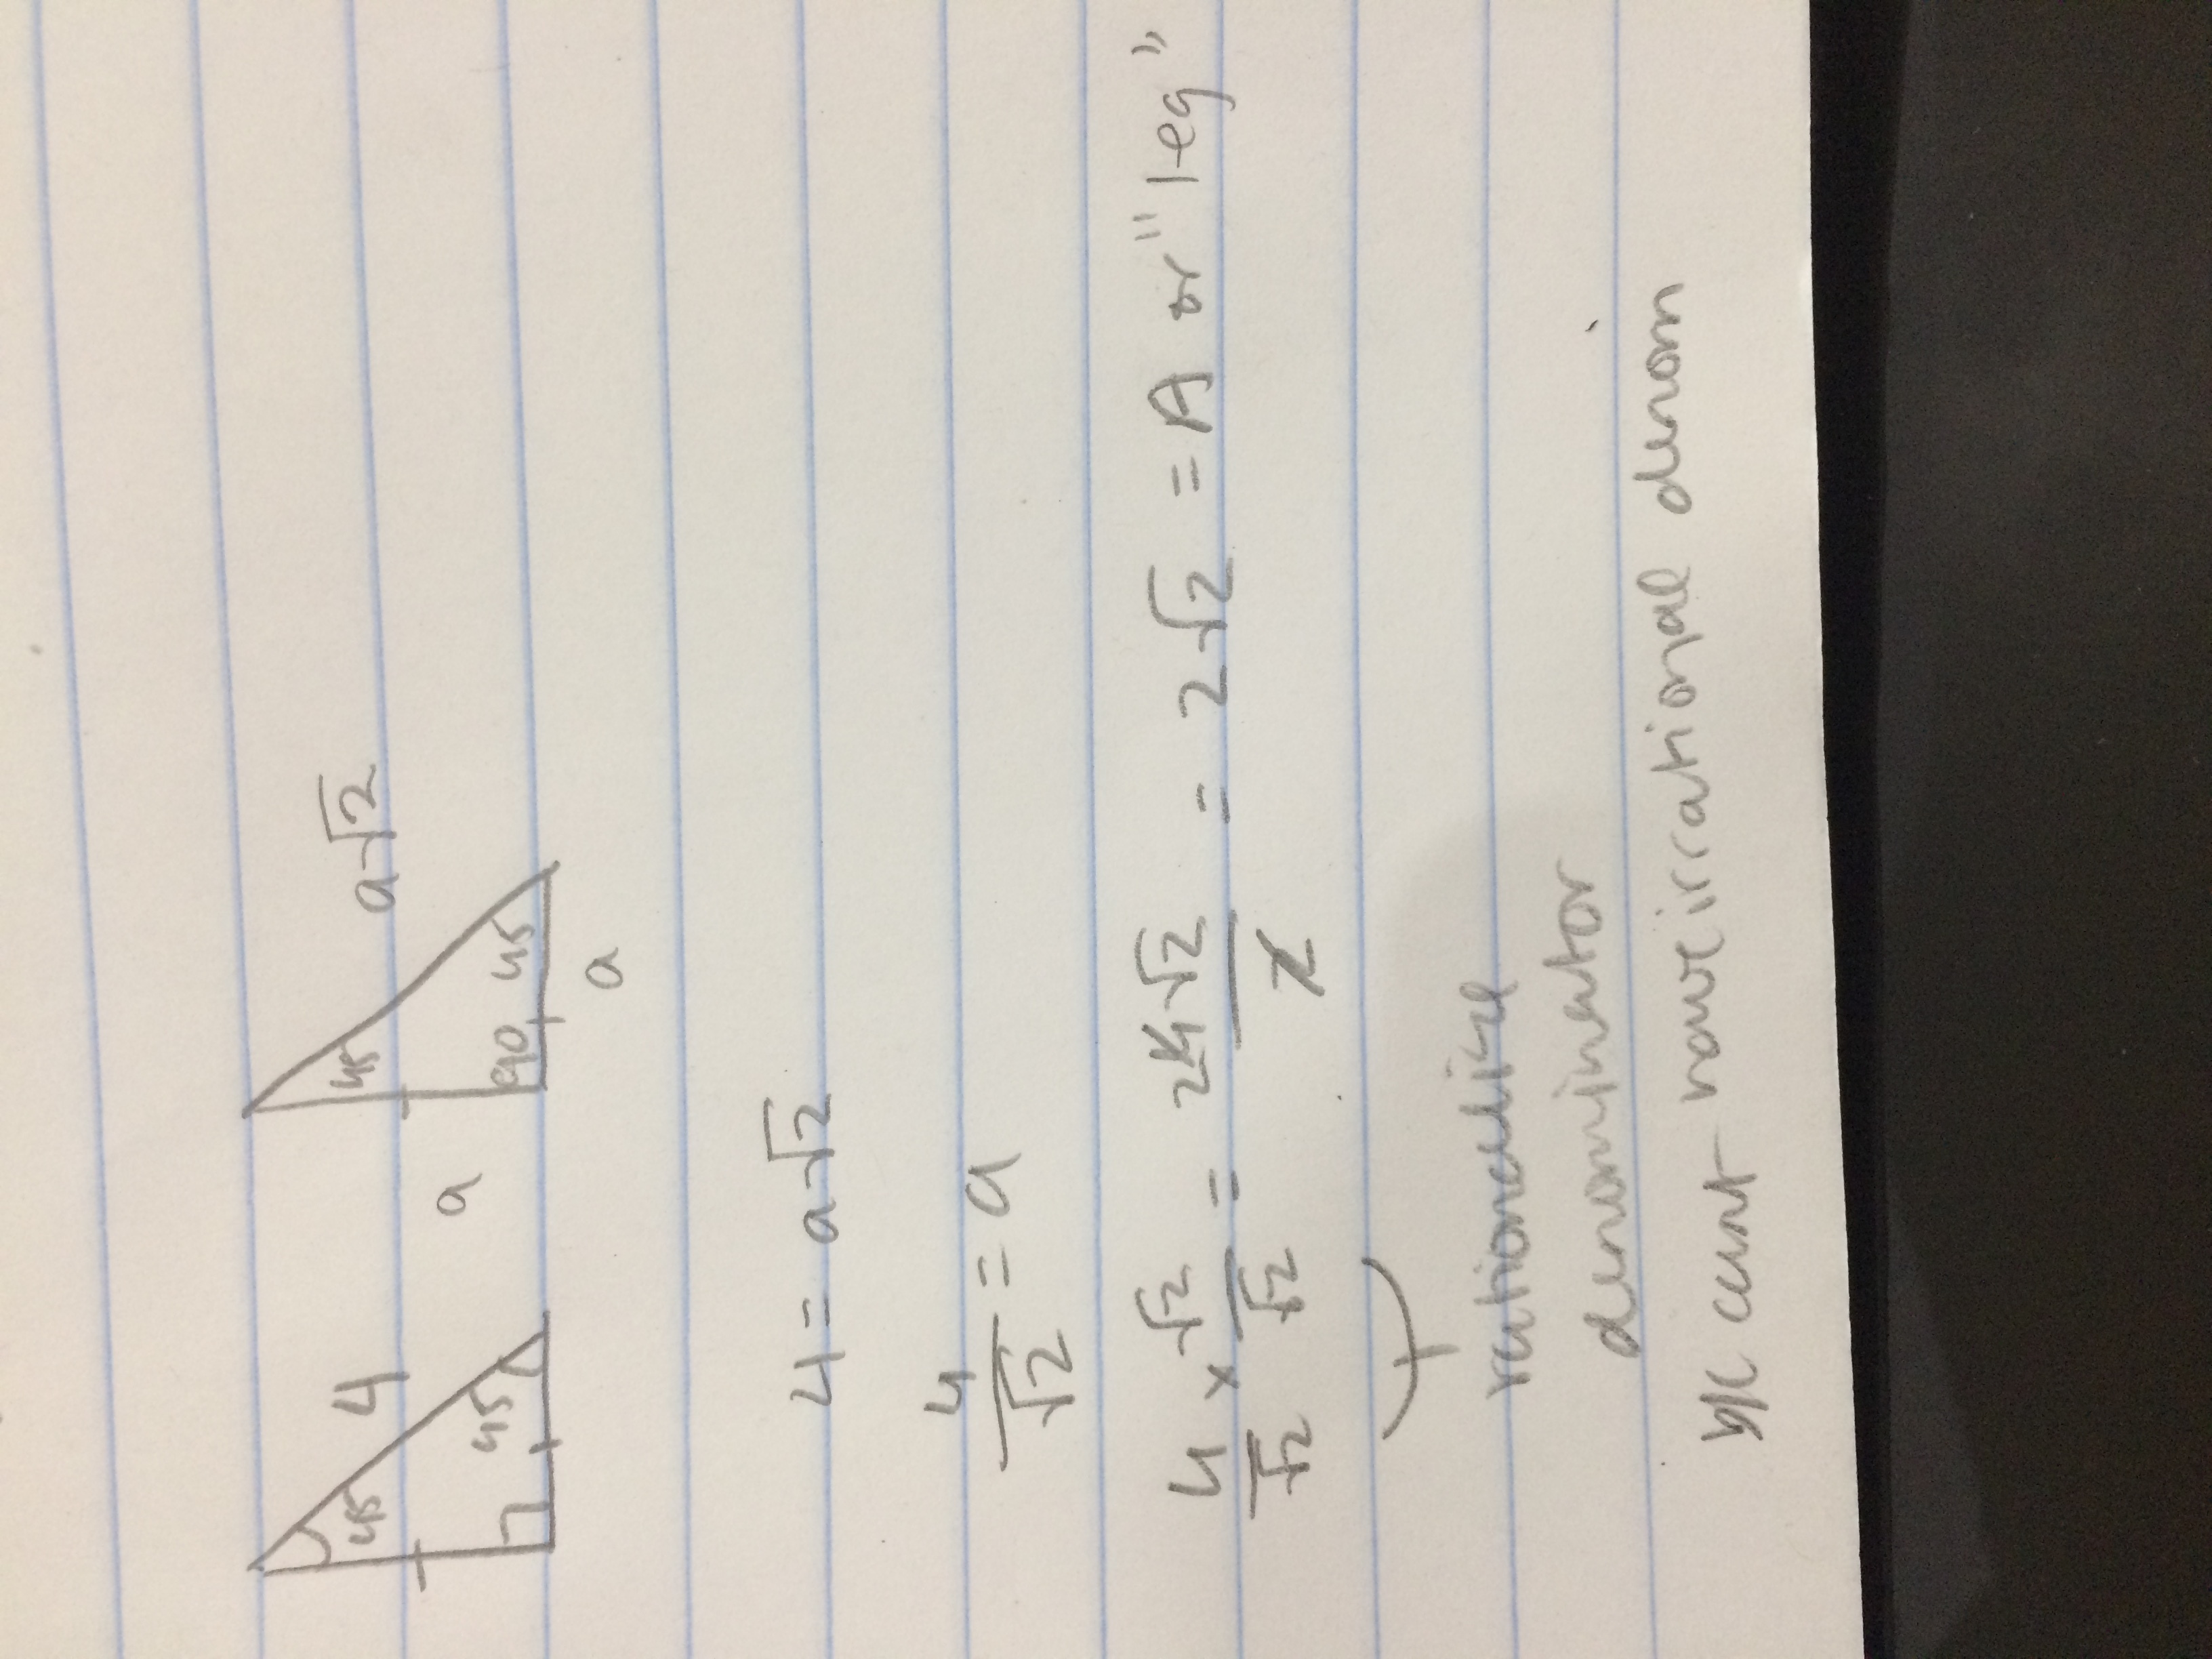 45 4 45
a 45 90 45 a√2 a
4 = a√2
4/√2 = a
4/√2 x √2/√2 = 24√2/2 = 2√2 = A or "leg"
rationalize
denominator
b/c cant have irrational denom